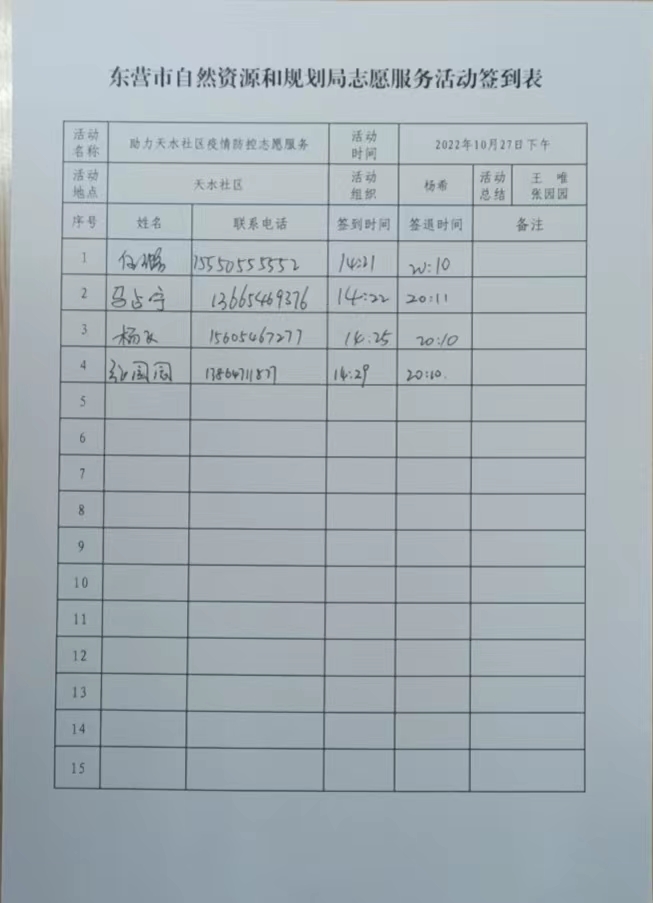 东营市自然资源和规划局志愿服务活动签到表
活动名称 助力天水社区疫情防控志愿服务 活动时间 2022年10月27日下午
活动地点 天水社区 活动组织 杨希 活动总结 王唯 张园园
序号 姓名 联系电话 签到时间 签退时间 备注
1 15550555552 14:21 20:10
2 马占宇 13665469376 14:22 20:11
3 15605467277 14:25 20:10
4 张园园 13864711877 14:29 20:10
5
6
7
8
9
10
11
12
13
14
15